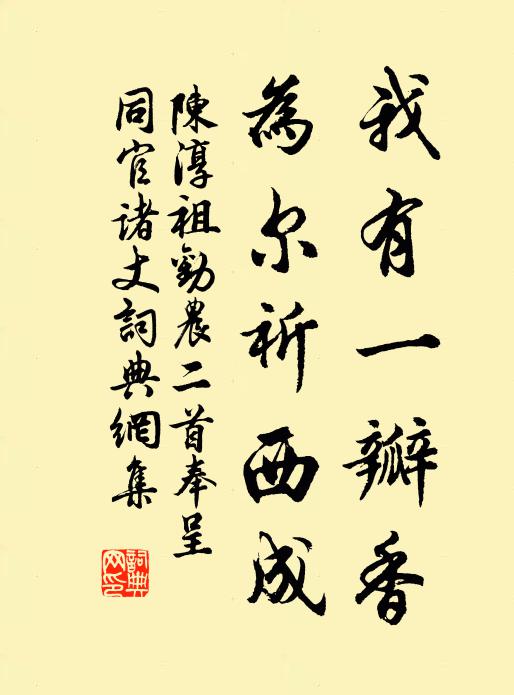 我有一瓣香
為尔祈西成
陳淳祖勸農二首奉呈
同官诸丈詞典網集
詞典网印